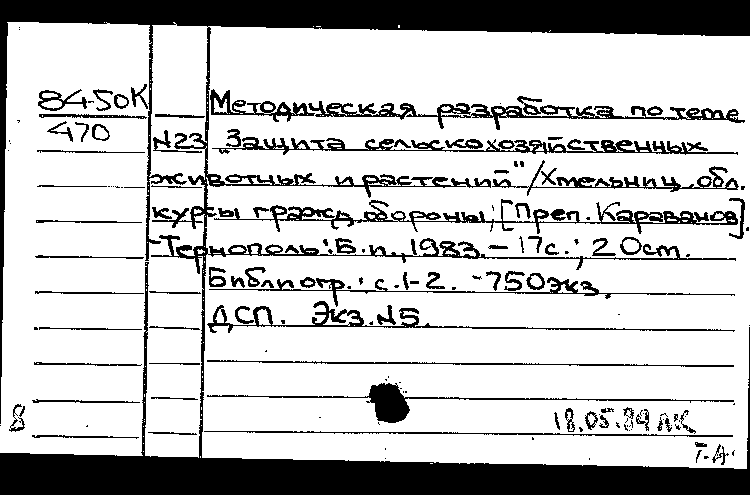 84-50К Методическая разработка по теме
470 N23 „Защита сельскохозяйственных
животных и растений" / Хмельниц. обл.
курсы гражд. обороны; [Преп. Караванов].
- Тернополь: Б.и., 1983. - 17с.; 20см.
Библиогр.: с.1-2. - 750экз.
ДСП. Экз. N5.
8 18.05.89 лк
Т.А.